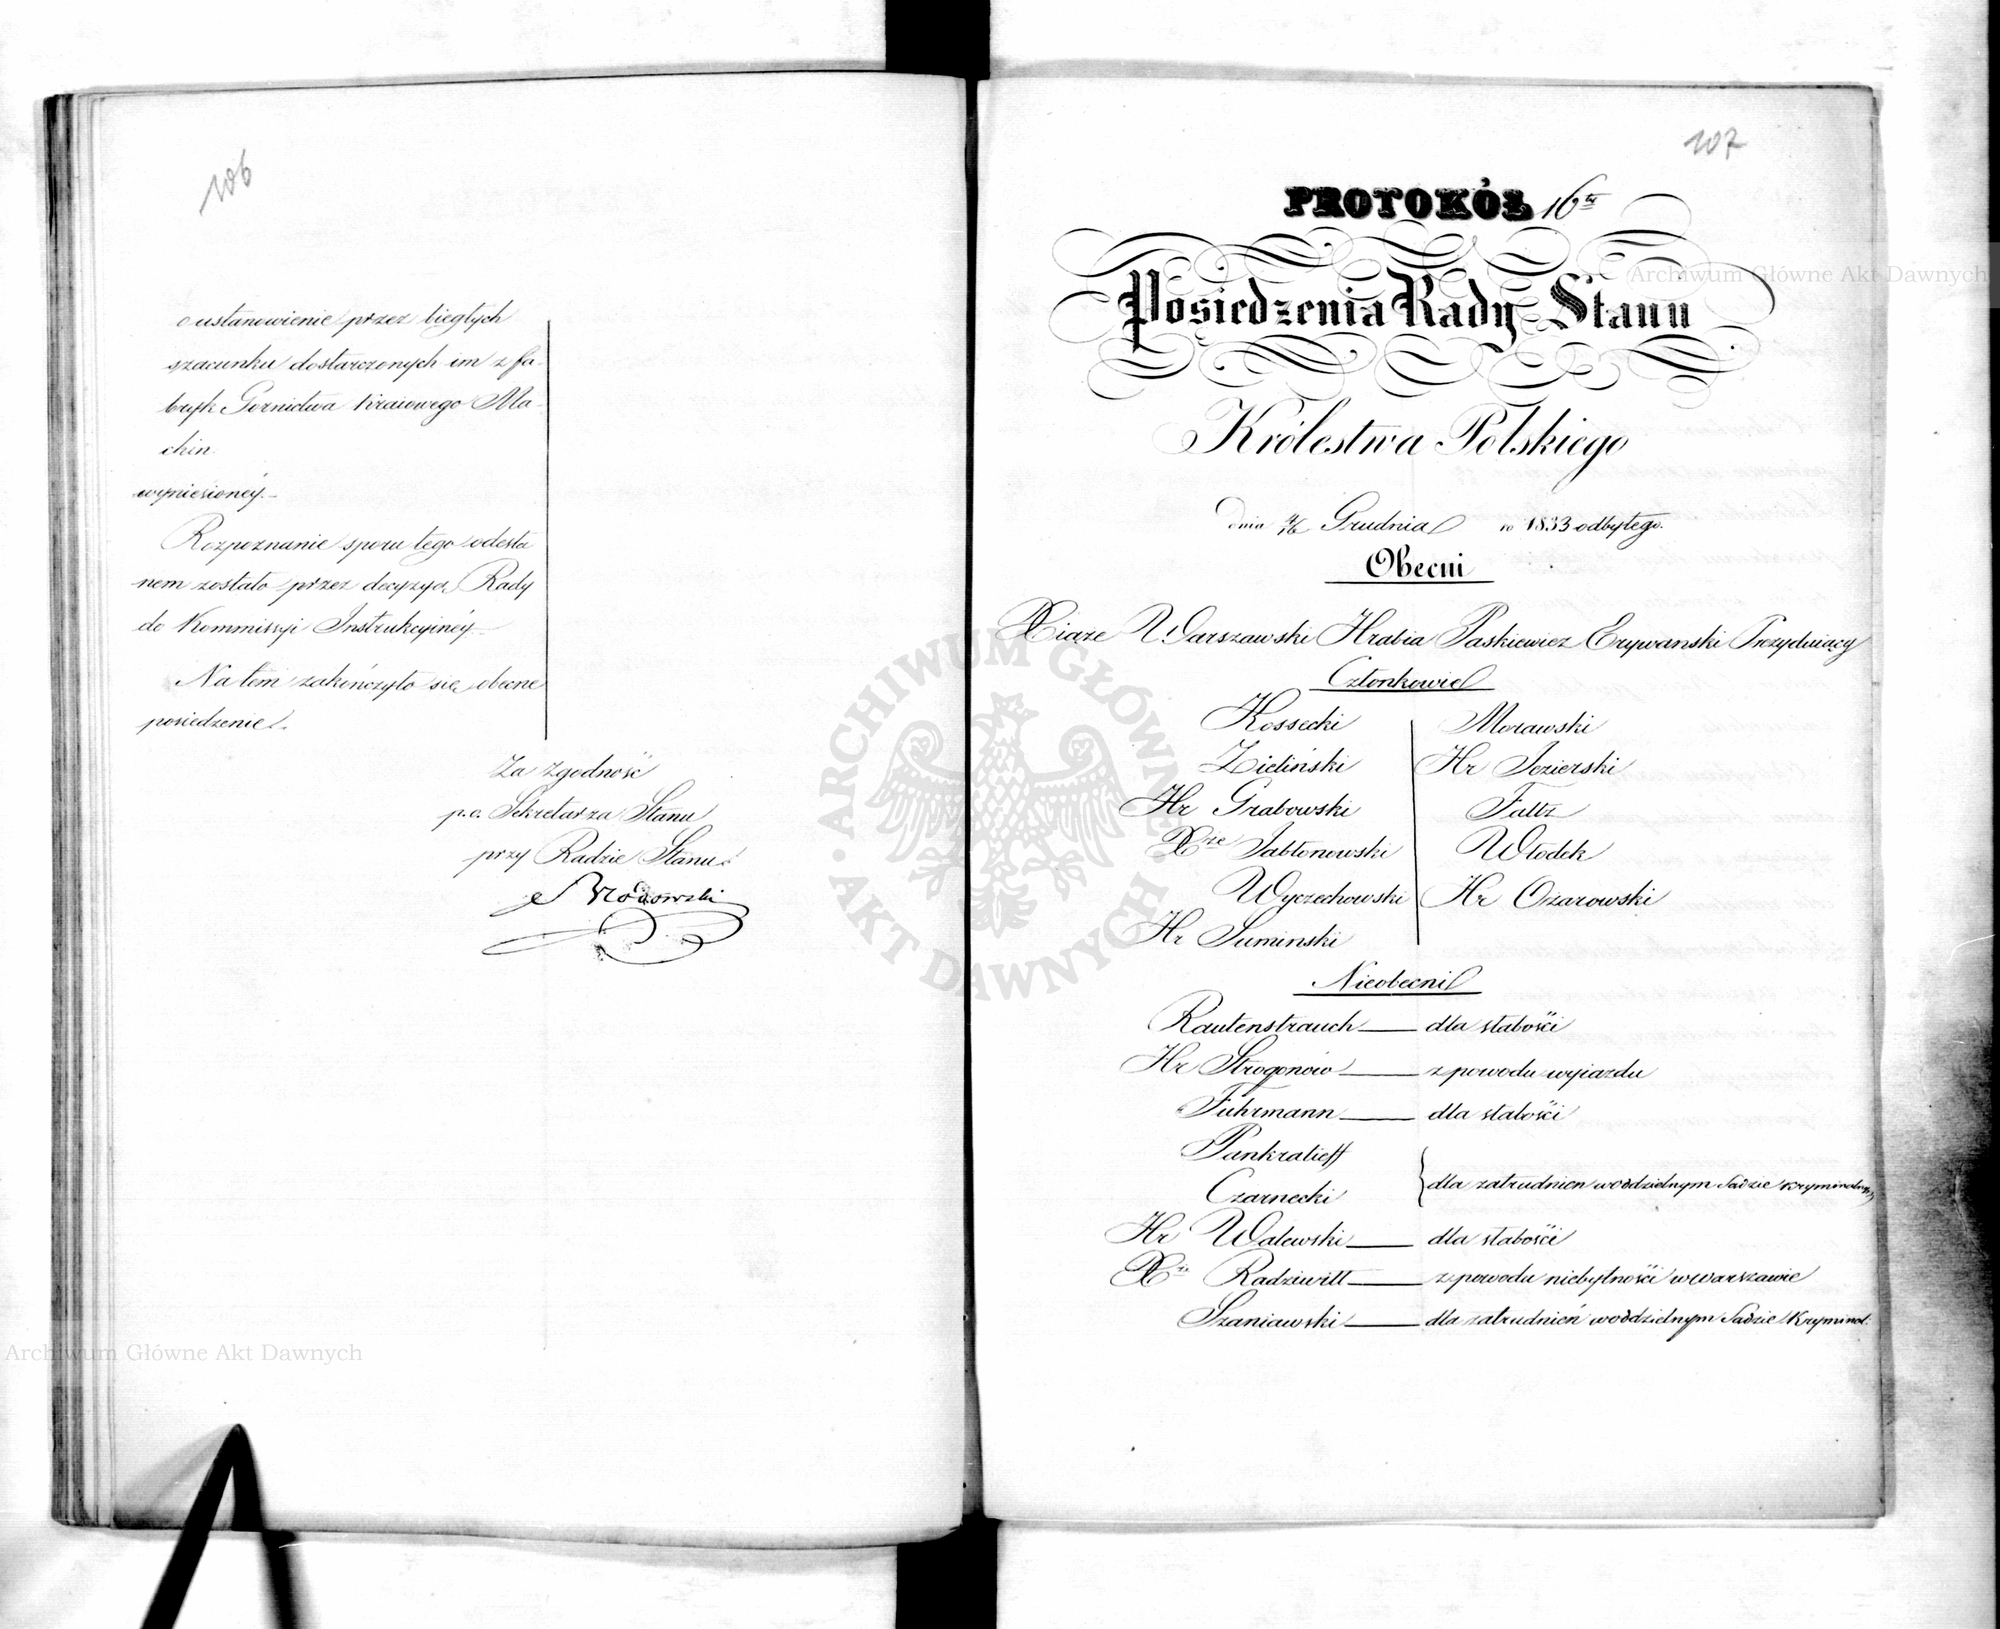 106
o ustanowienie przez biegłych
szacunku dostarczonych im z fa-
bryk Gornictwa Kraiowego Ma-
chin
wyniesioney.-
Rozpoznanie sporu tego odesła
nem zostało przez decyzyą Rady
do Kommissyi Instrukcyiney
Na tem zakończyło się obecne
posiedzenie.
Za Zgodność
p.o. Sekretarza Stanu
przy Radzie Stanu
Brodowski
107
PROTOKÓŁ 16ty
Posiedzenia Rady Stanu
Królestwa Polskiego
dnia 4/16 Grudnia ro 1833 odbytego.
Obecni
Xiąże Warszawski Hrabia Paskiewicz Erywanski Prezyduiący
Członkowie
Kossecki Morawski
Zieliński Hr Jezierski
Hr Grabowski Faltz
Xże Jabłonowski Włodek
Wyczechowski Hr Ożarowski
Hr Suminski
Nieobecni
Rautenstrauch — dla słabości
Hr Strogonow — z powodu wyiazdu
Fuhrmann — dla słabości
Pankratieff
Czarnecki } dla zatrudnien w oddzielnym Sadzie Kryminalnym
Hr Walewski — dla słabości
Xże Radziwiłł — z powodu niebytności w Warszawie
Szaniawski — dla zatrudnień w oddzielnym Sadzie Kryminal.
Archiwum Główne Akt Dawnych
ARCHIWUM GŁÓWNE AKT DAWNYCH
Archiwum Główne Akt Dawnych